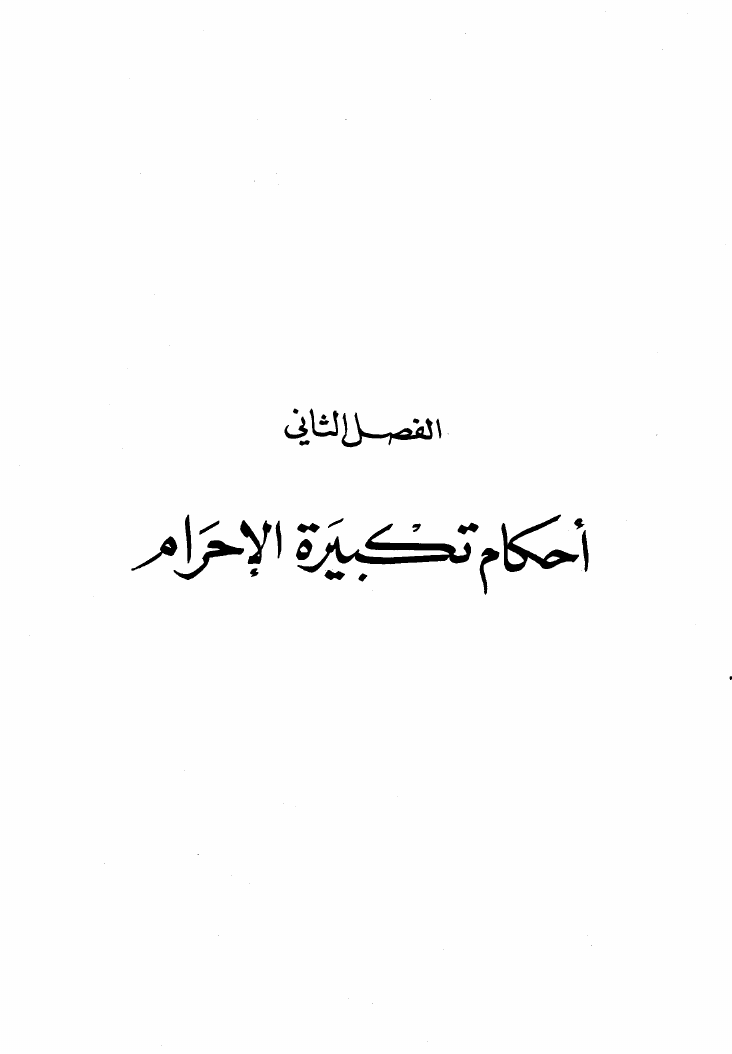 الفصل الثاني
أحكام تكبيرة الإحرام